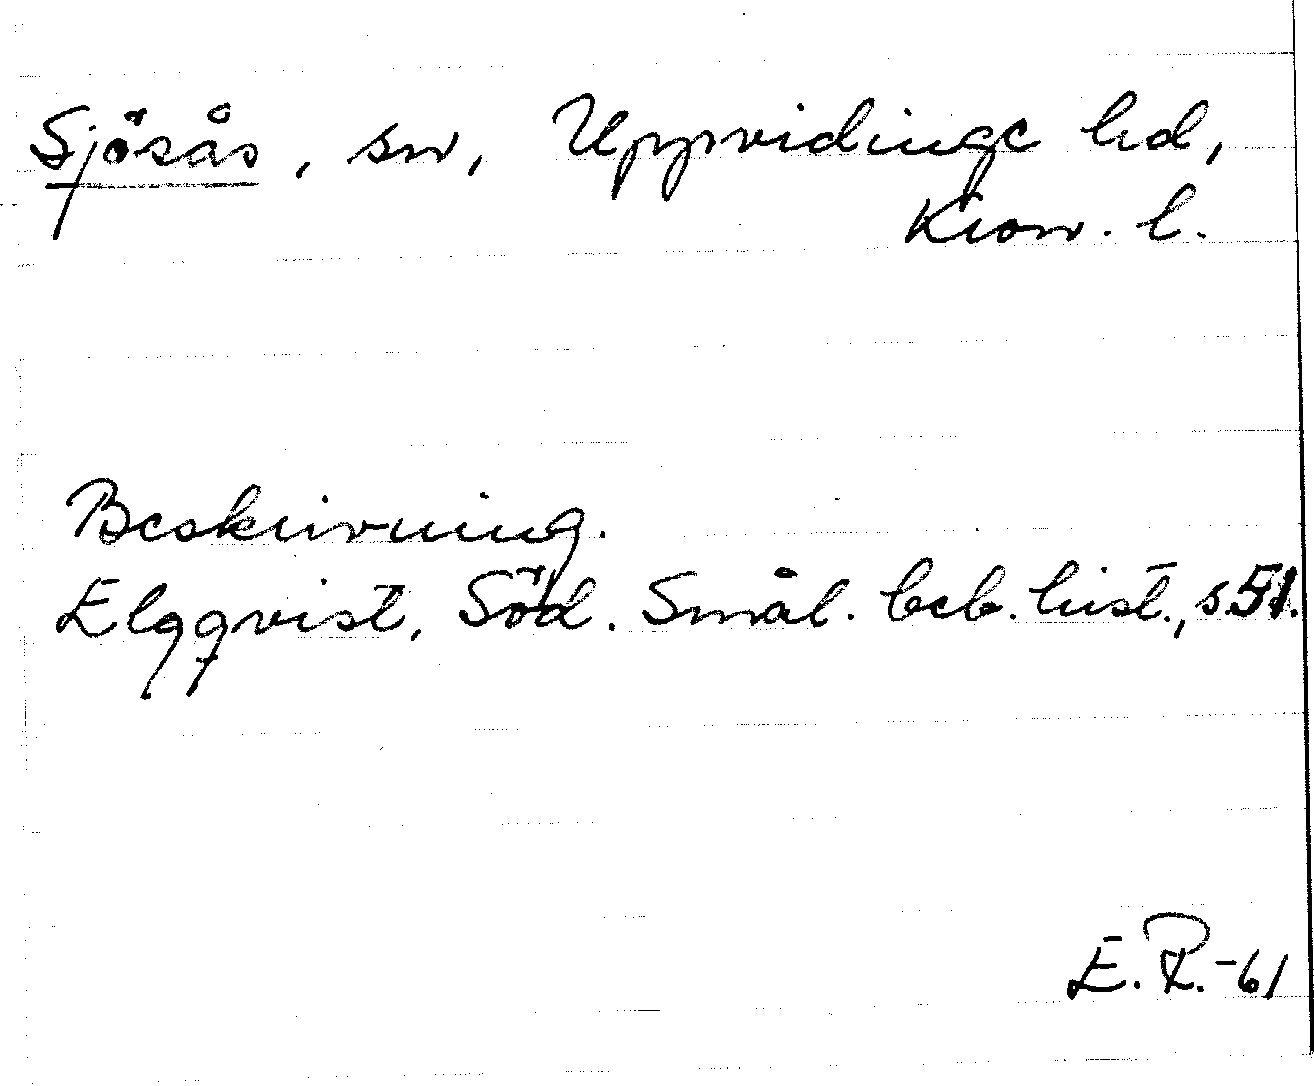 Sjösås, sn, Uppvidinge hd,
Kron. l.
Beskrivning.
Elgqvist, Söd. Smål. beb. hist., s.51.
E.R.-61